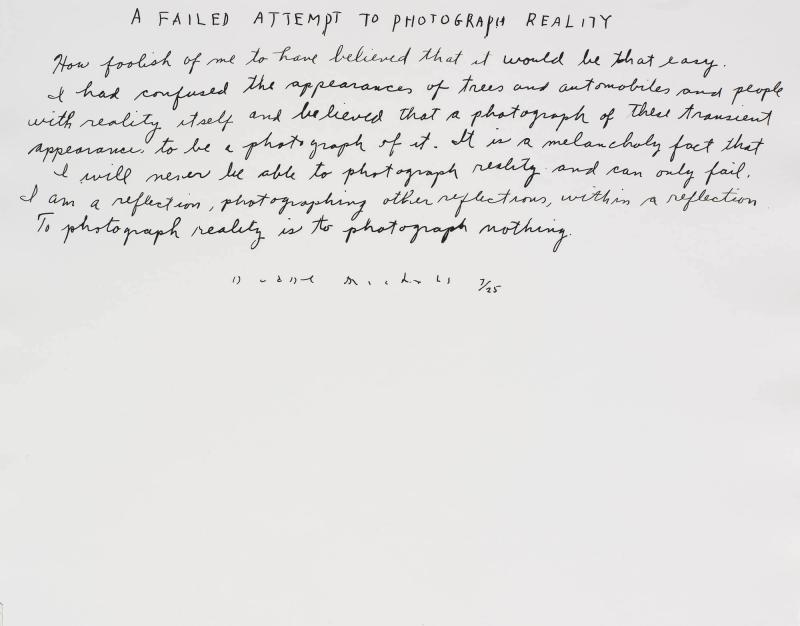 A FAILED ATTEMPT TO PHOTOGRAPH REALITY
How foolish of me to have believed that it would be that easy.
I had confused the appearances of trees and automobiles and people
with reality itself and believed that a photograph of these transient
appearances to be a photograph of it. It is a melancholy fact that
I will never be able to photograph reality and can only fail.
I am a reflection, photographing other reflections, within a reflection
To photograph reality is to photograph nothing.
7/25